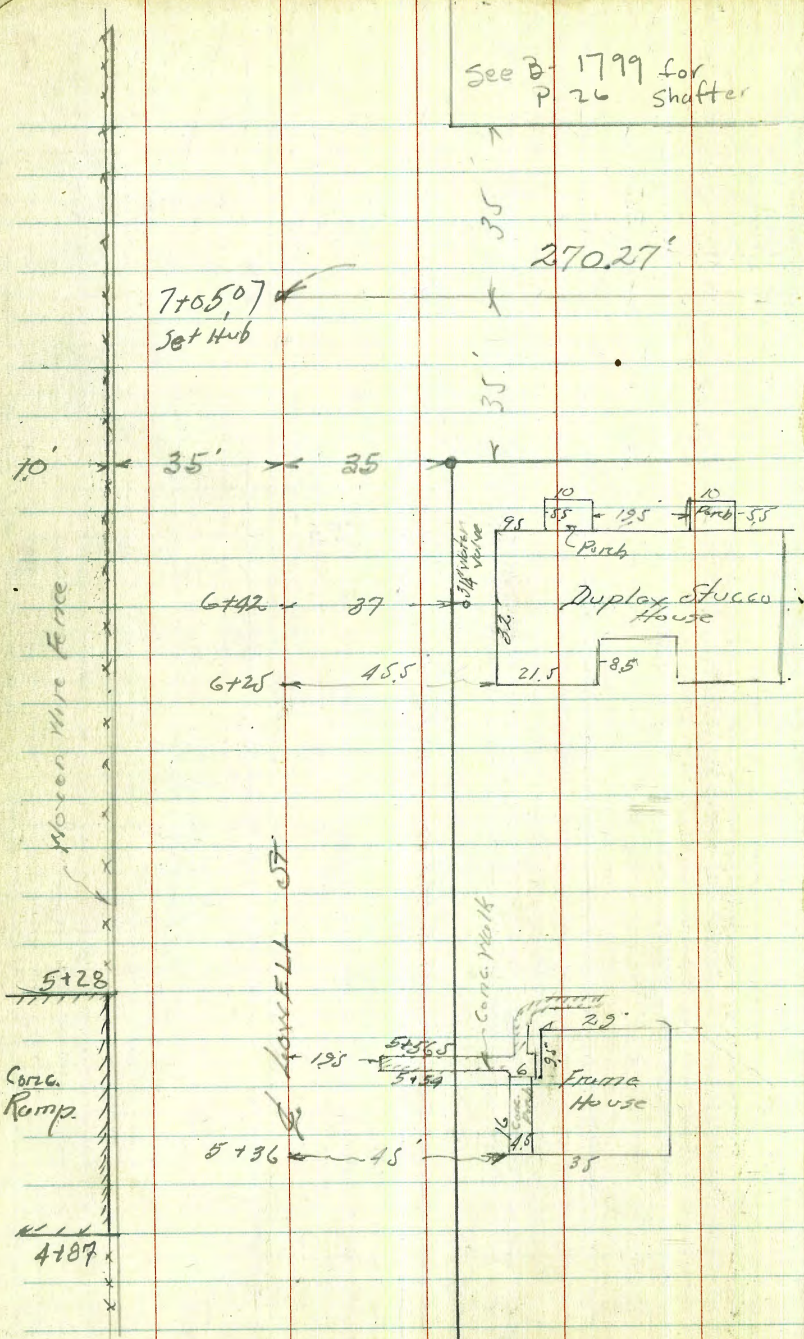 See B-1799 for
P 26 Shafter
35'
270.27'
7+05.07
Set Hub
35'
10'
35'
35
10
10
5.5
19.5
Porch
5.5
9.5
Porch
3/4" Water
Valve
6+42
37
Duplex Stucco
House
32
6+25
45.5
21.5
8.5
Woven Wire Fence
℄ LOWELL ST
Conc. Walk
5+28
29
19.5
5+56.5
5+54
6
9.5
Frame
House
Conc.
Ramp.
Conc.
Porch
16
4.5
5+36
45'
35
4+87